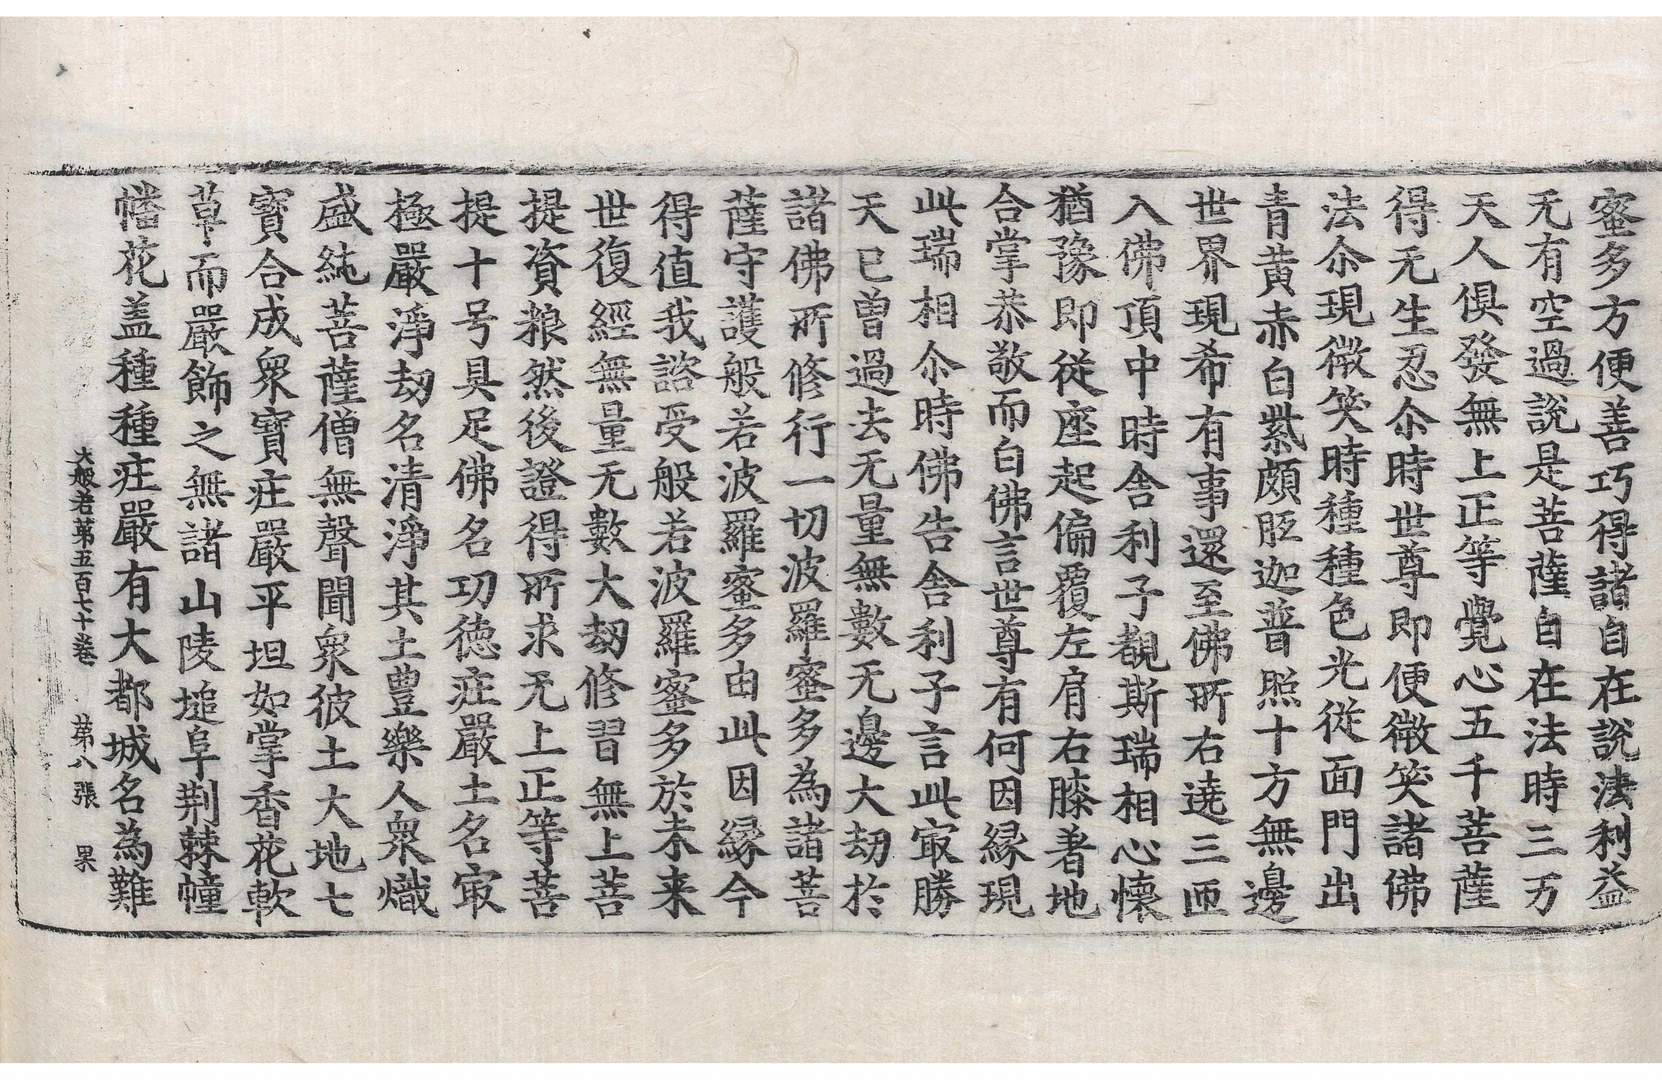 蜜多方便善巧得諸自在說法利益
无有空過說是菩薩自在法時三万
天人俱發無上正等覺心五千菩薩
得无生忍尒時世尊即便微笑諸佛
法尒現微笑時種種色光從面門出
青黃赤白紫頗胝迦普照十方無邊
世界現希有事還至佛所右遶三匝
入佛頂中時舍利子覩斯瑞相心懷
猶豫即從座起偏覆左肩右膝著地
合掌恭敬而白佛言世尊有何因緣現
此瑞相尒時佛告舍利子言此寂勝
天已曾過去无量無數无邊大劫於
諸佛所修行一切波羅蜜多為諸菩
薩守護般若波羅蜜多由此因緣今
得值我諮受般若波羅蜜多於未来
世復經無量无數大劫修習無上菩
提資粮然後證得所求无上正等菩
提十号具足佛名功德庄嚴土名寂
極嚴淨劫名清淨其土豊樂人衆熾
盛純菩薩僧無聲聞衆彼土大地七
寳合成衆寳庄嚴平坦如掌香花軟
草而嚴飾之無諸山陵塠阜荆棘幢
幡花盖種種庄嚴有大都城名為難
大般若第五百七十卷 第八張 果